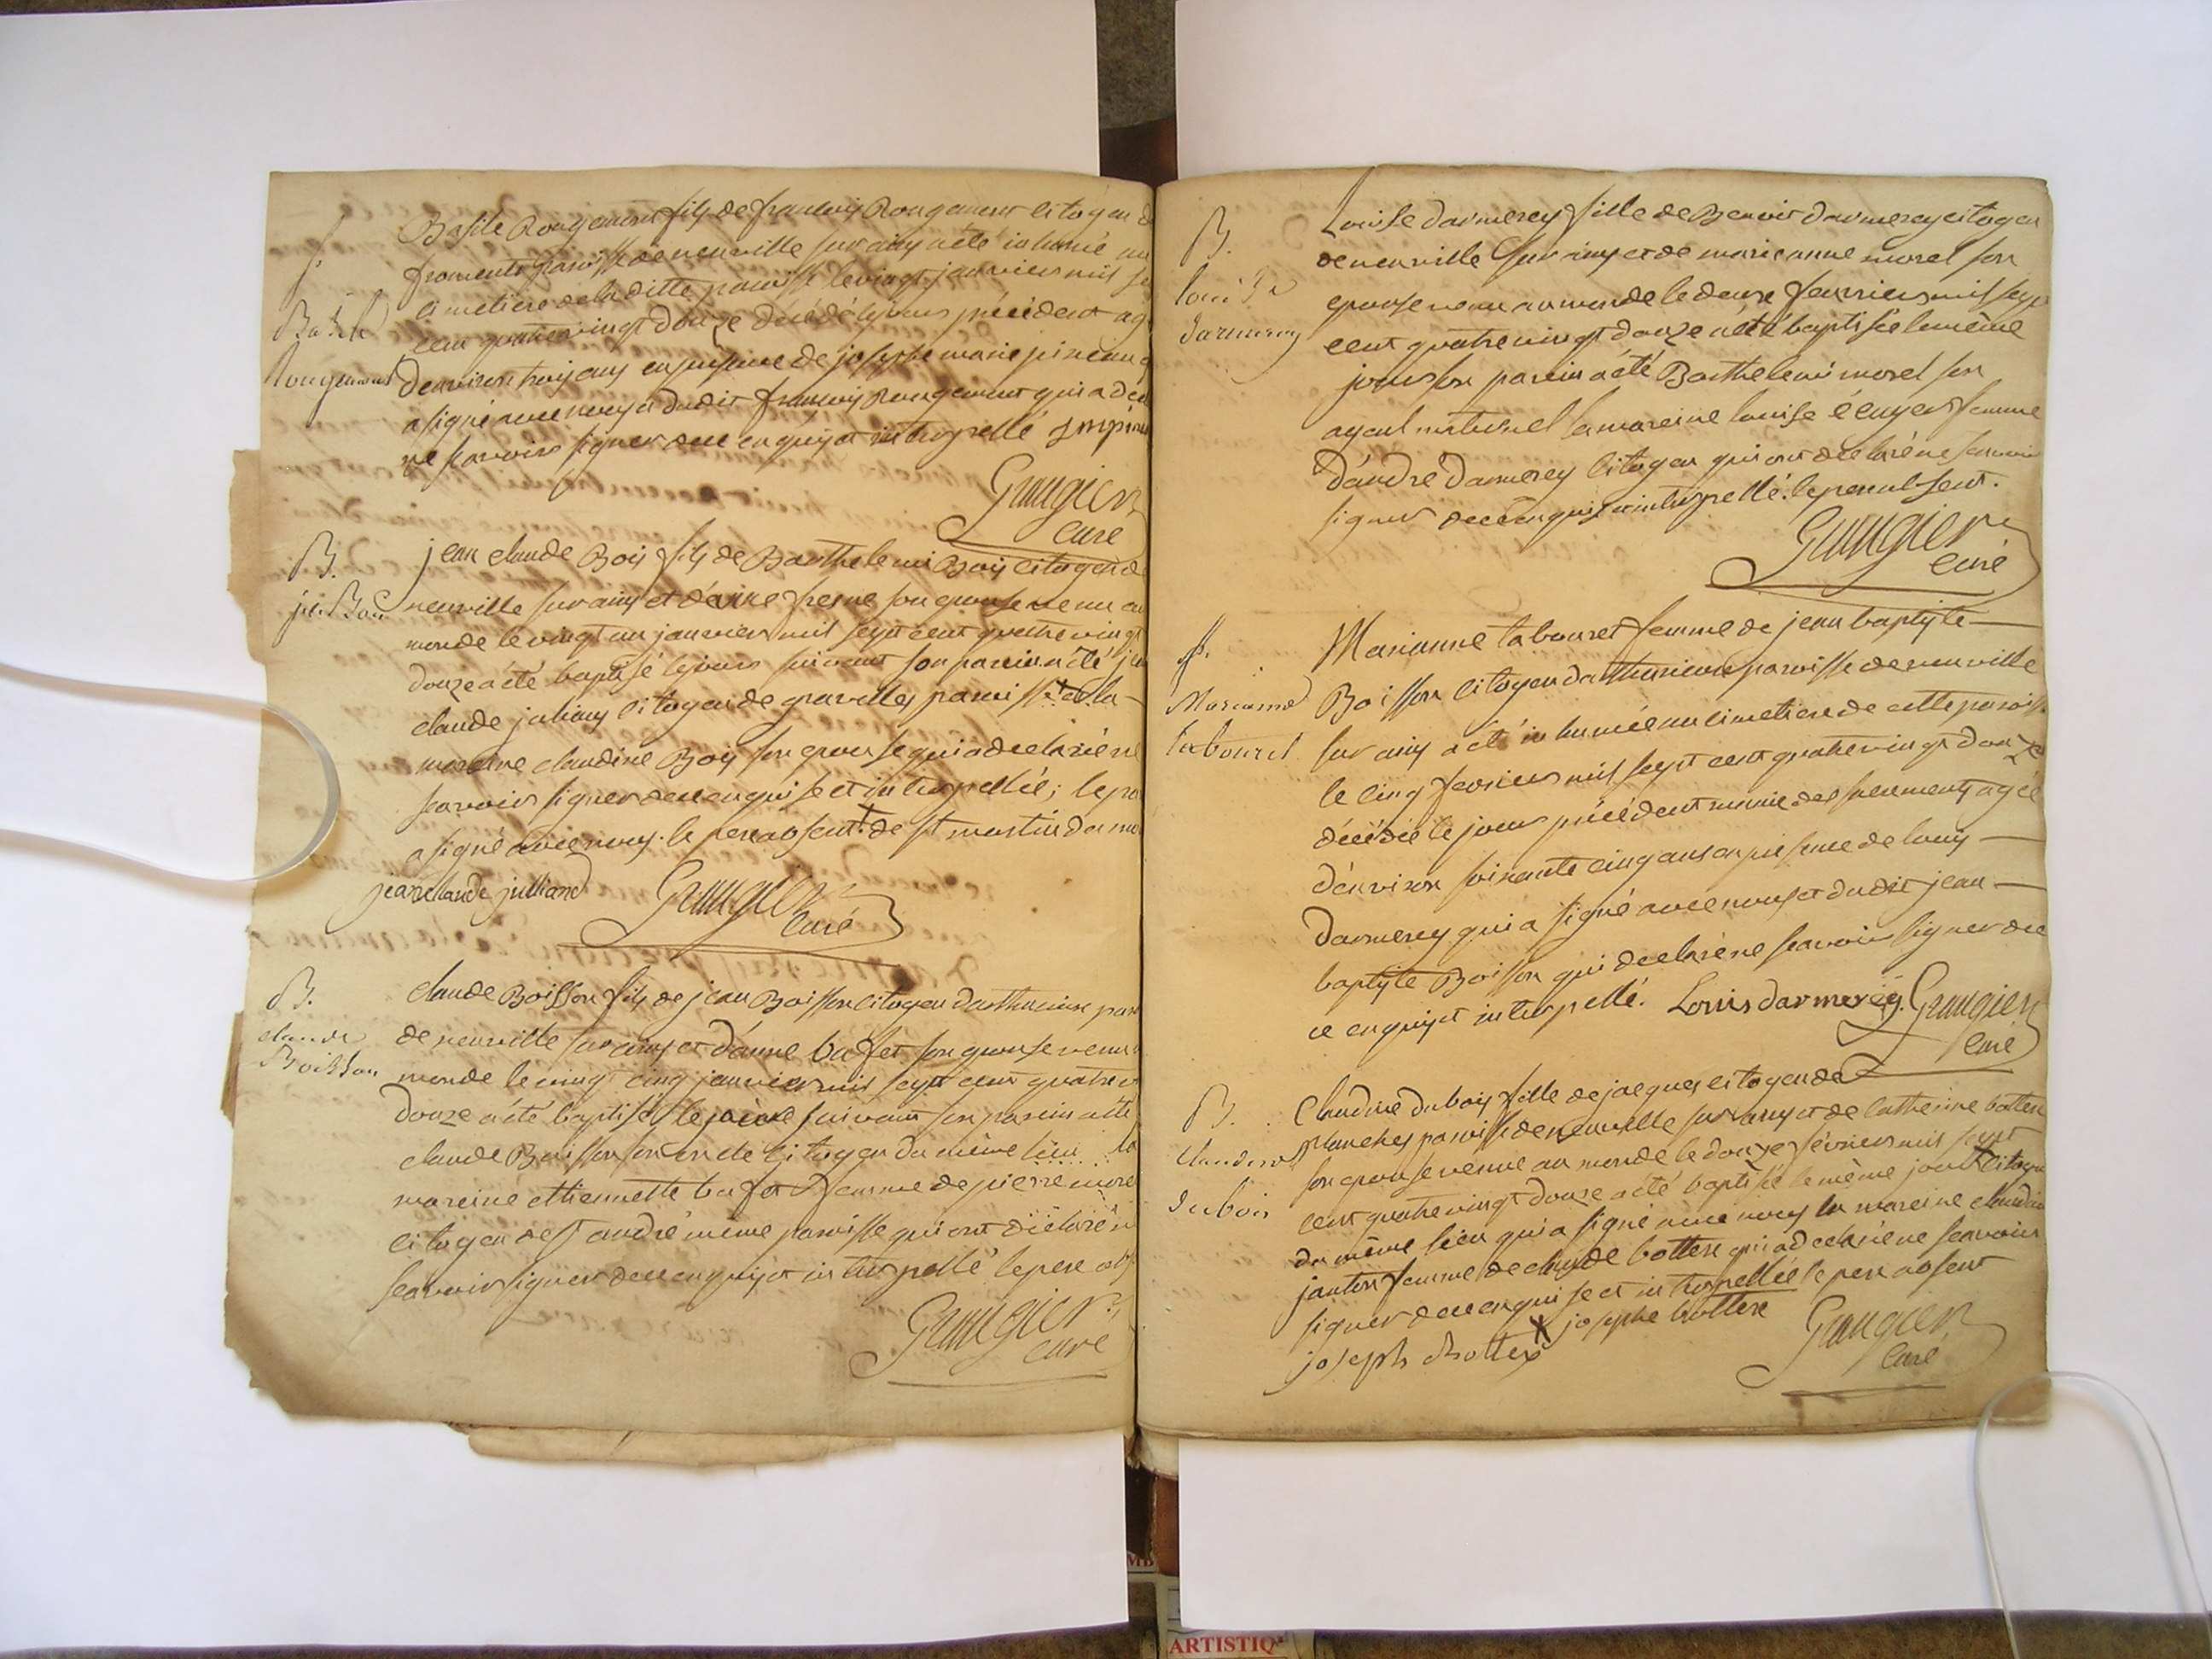 S.
Basile
Rougemont
Basile Rougemont fils de francois Rougemont citogen d
froment paroisse de neuville sur ainy a eté inhumé au
cimetiere de la ditte paroisse le vingt janvier mil se
cent quatre vingt douze décédé le jour précédent agé
denviron trois ans en presence de josephe marie
a signé avec nous et dudit francois Rougemont qui a dec
ne scavoir signer de ce enquis et interpellé
Graugier
curé
B.
j. c. Bois
jean claude Bois fils de Barthelemi Bois citogen de
neuville sur ainy et d'anne fresne son epouse venu au
monde le vingt un janvier mil sept cent quatre vingt
douze a été baptisé le jour suivant son parein a été j
claude juliany citogen de gravelles paroisse + la
mareine claudine Bois son epouse qui a declaré ne
scavoir signer de ce enquise et interpellée; le pa
a signé avec nous. le pere absent. + de st martin du m
jean claude julliand
Graugier
curé
B.
claude
Boisson
claude Boisson fils de jean Boisson citogen d'arthurieux par
de neuville sur ainy et d'anne bufet son epouse venu a
monde le vingt cinq janvier mil sept cent quatre v
douze a été baptisé le jour suivant son parein a été
claude Boisson son oncle citogen du même lieu la
mareine ettiennette bufet femme de pierre more
citogen de st andré même paroisse qui ont déclaré n
scavoir signer de ce enquis et interpellé le pere abs
Graugier
curé
B.
louise
darmerey
Louise darmerey fille de Benoit darmerey citogen
de neuville sur ainy et de marie anne morel son
epouse venu au monde le deux fevrier mil sept
cent quatre vingt douze a été baptisée le même
jour son parein a été Barthelemi morel son
ayeul maternel la mareine louise écuyer femme
d'andré darmerey citogen qui ont declaré ne scavoir
signer de ce enquis et interpellé. le pere absent.
Graugier
curé
S.
Marianne
tabouret
Marianne tabouret femme de jean baptiste
Boisson citogen d'arthurieux paroisse de neuville
sur ainy a eté inhumée au cimetiere de cette paroisse
le cinq fevrier mil sept cent quatre vingt douze
décédée le jour précédent munie des sacrements agée
d'environ soixante cinq ans en presence de louis
darmerey qui a signé avec nous et dudit jean
baptiste Boisson qui declaré ne scavoir signer de
ce enquis et interpellé. Louis darmerey. Graugier
curé
B.
claudine
dubois
Claudine dubois fille de jacques citogen de
planches paroisse de neuville sur ainy et de catherine bottex
son epouse venue au monde le douze fevrier mil sept
cent quatre vingt douze a été baptisé le même jour + citogen
du même lieu qui a signé avec nous la mareine claudine
janton femme de claude bottex qui a declaré ne scavoir
signer de ce enquise et interpellée le pere absent
+ josephe bottex
joseph Bottex
Graugier
curé
ARTISTIQ